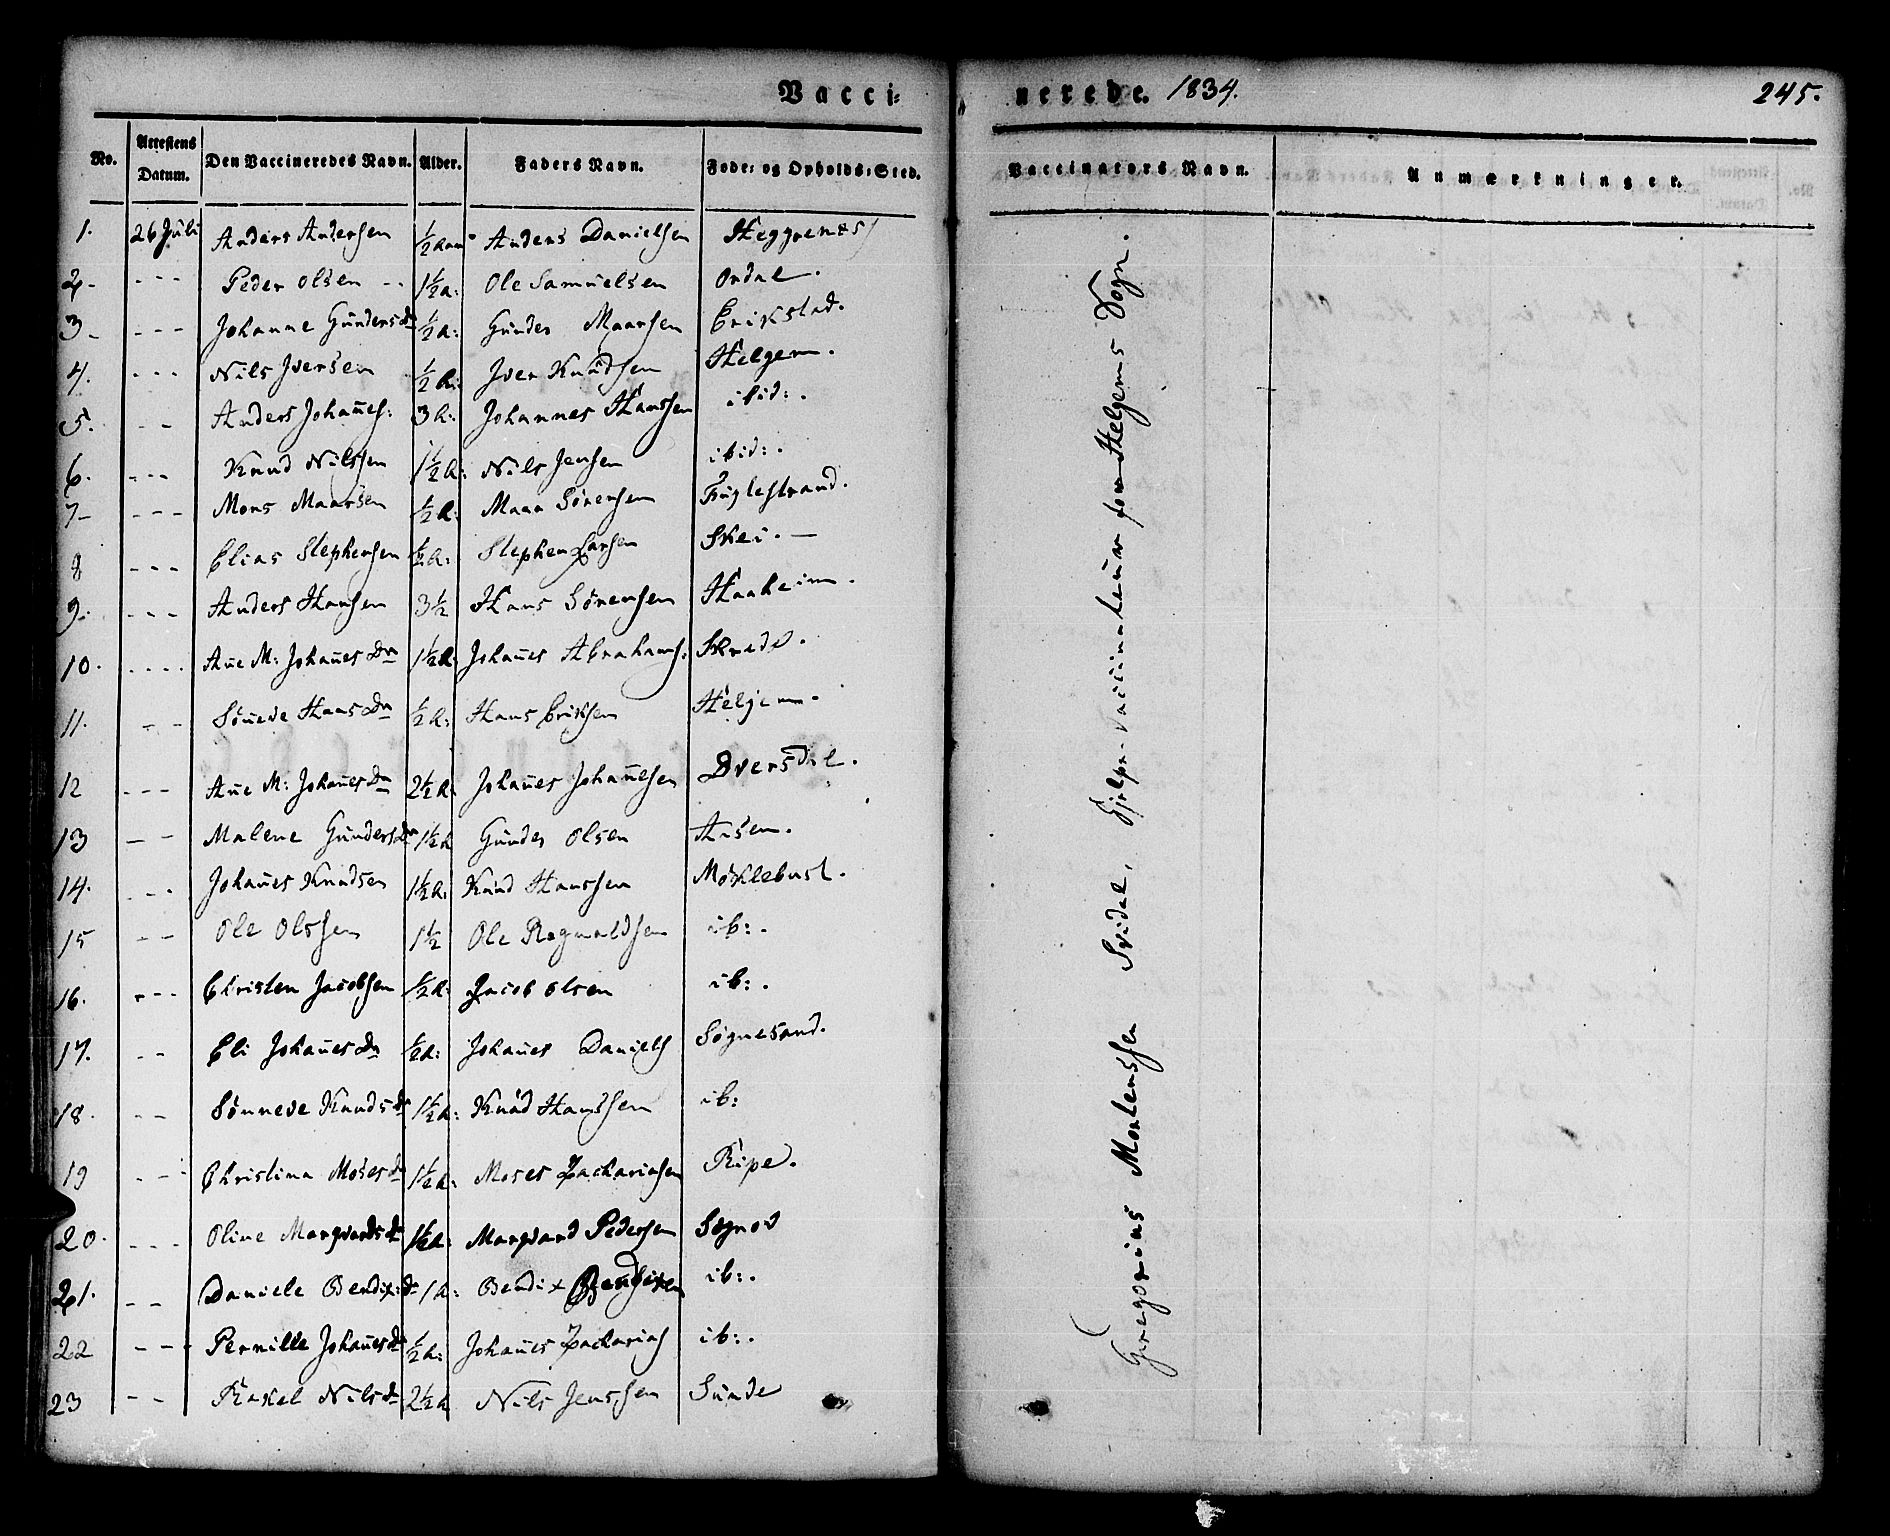 Vacci=
nerede. 1834.
245.
No. Attestens Datum. Den Vaccineredes Navn. Alder. Faders Navn. Føde= og Opholds=Sted. Vaccinators Navn. Anmærkninger.
1. 26 Juli Anders Andersen ½ Anders Danielsen Heggrenes
2. - - - Peder Olsen - - 1½ a: Ole Samuelsen Ordal.
3 - - - - Johanne Gündersdr ½ A: Günder Maarsen Erikstad.
4. - - - Nils Iversen ½ A: Iver Knüdsen Helgem.
5. - - Anders Johañes: 3 A: Johannes Hanssen ibid:.
6. - - - Knud Nilssen 1½ A: Nils Jensen ibid:.
7 - - - - Mons Maarsen ½ A: Maar Sörensen Füglestrand.
8 - - - Elias Stephensen ½ A: Stephen Larsen Skei. -
9. - - - Anders Hansen 3½ Hans Sörensen Haaheim.
10. - - - - Añe M: JohañesDr 1½ A: Johañes Abrahams: Skrede.
11. - - Söneve HansDr ½ A: Hans Eriksen Helgem.
12 - - - Añe M: JohañesDr 2½ A. Johañes Johañesen Dversdal.
13 - - Malene Gündersdr 1½ A Günder Olsen Aasen.
14. - - - Johañes Knudsen 1½ A: Knüd Hanssen Möklebust.
15 - - Ole Olssen 1½ Ole Rognaldsen ib:.
16. - - - Christen Jacobsen ½ A: Jacob Olsen ib:.
17. - - Eli JohañesDr ½ A: Johañes Daniels Sögnesand.
18. - - Sönneve Knudsdr 1½ A: Knüd Hanssen ib:
19 - - - Christina Mosesdr 1½ A: Moses Zachariasen Ripe.
20. - - - Oline Marqvardsdr 1½ A: Marqvard Pedersen
21. - - Daniele Bendix:dr 1 A: Bendix ib:.
22 - - - Pernille Johañesdr ½ A: Johañes Zacharias ib:.
23 - - Rakel Nilsdr 2½ A Nils Jenssen Sünde
Gregorius Mortenssen Svidal, Hjelpe-Vaccinateur for Helgems Sogn.